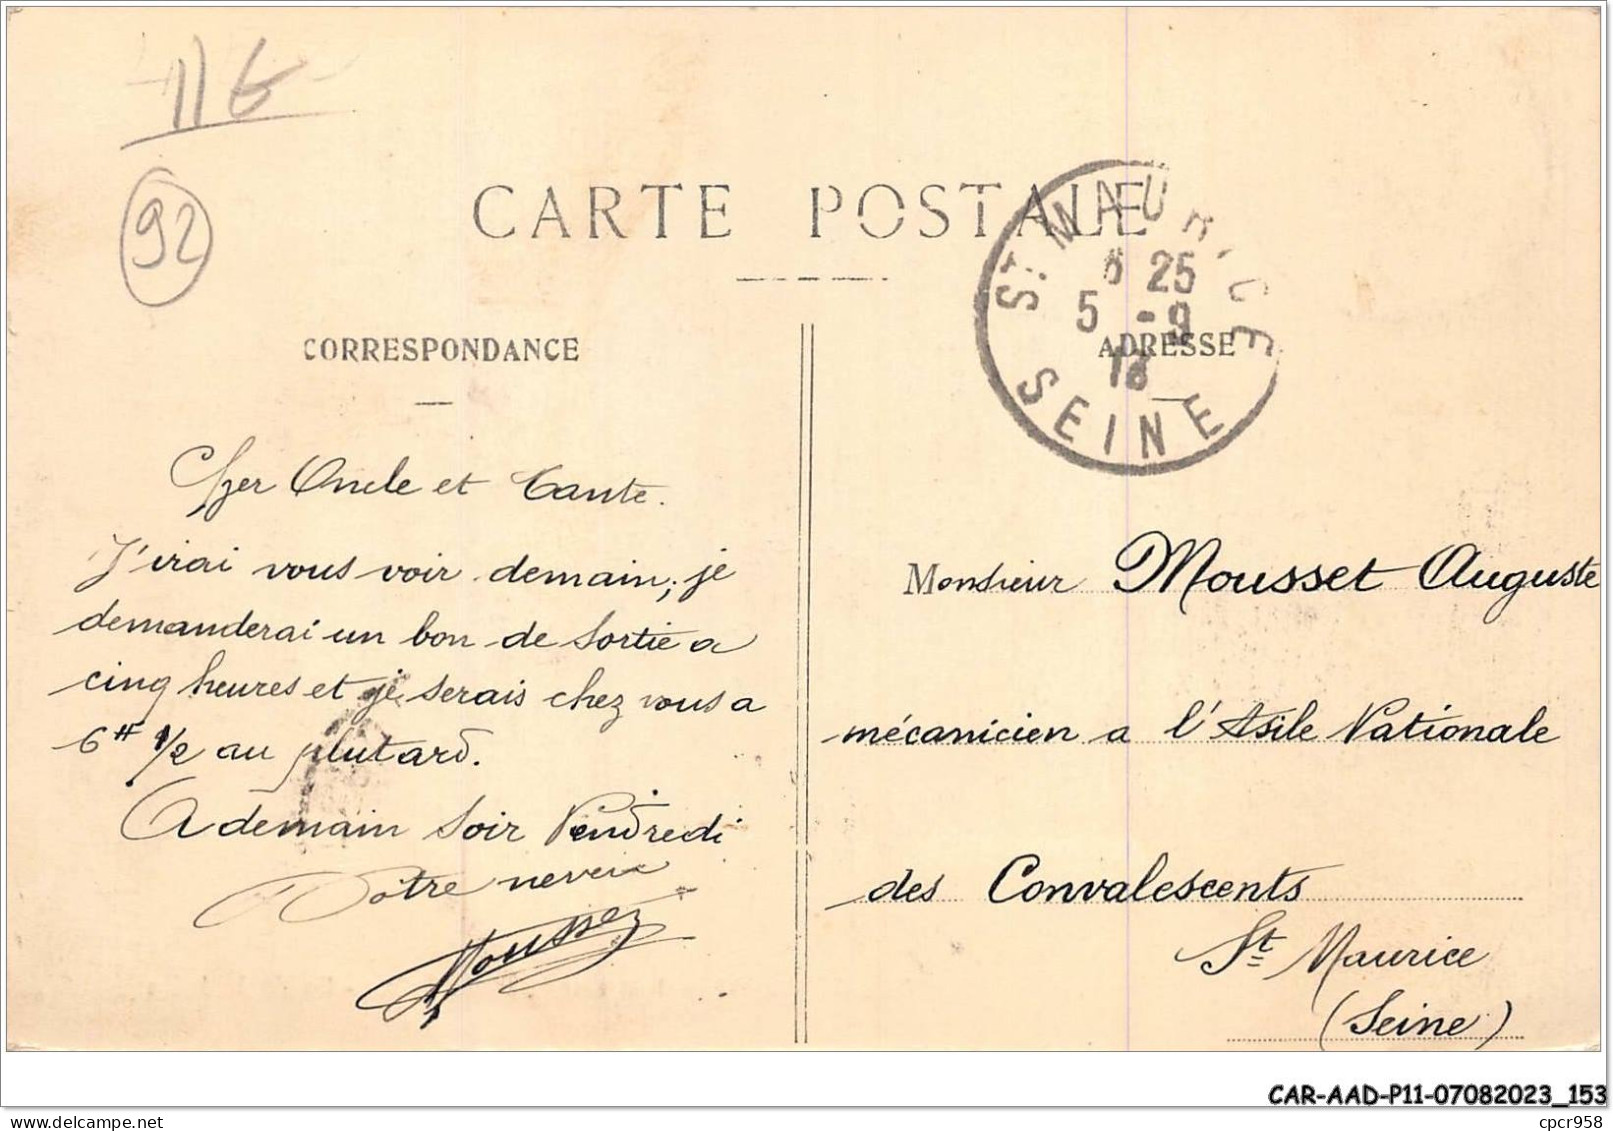 116
92
CARTE POSTALE
ST MAURICE
6 25
5 -9
13
SEINE
CORRESPONDANCE
ADRESSE
Cher Oncle et Tante.
J'irai vous voir demain; je
demanderai un bon de sortie a
cinq heures et je serais chez vous a
6H 1/2 au plutard.
A demain soir Vendredi
Votre neveu
Mousset
Monsieur Mousset Auguste
mécanicien a l'Asile Nationale
des Convalescents
St Maurice
(Seine)
CAR-AAD-P11-07082023_153
cpcr958